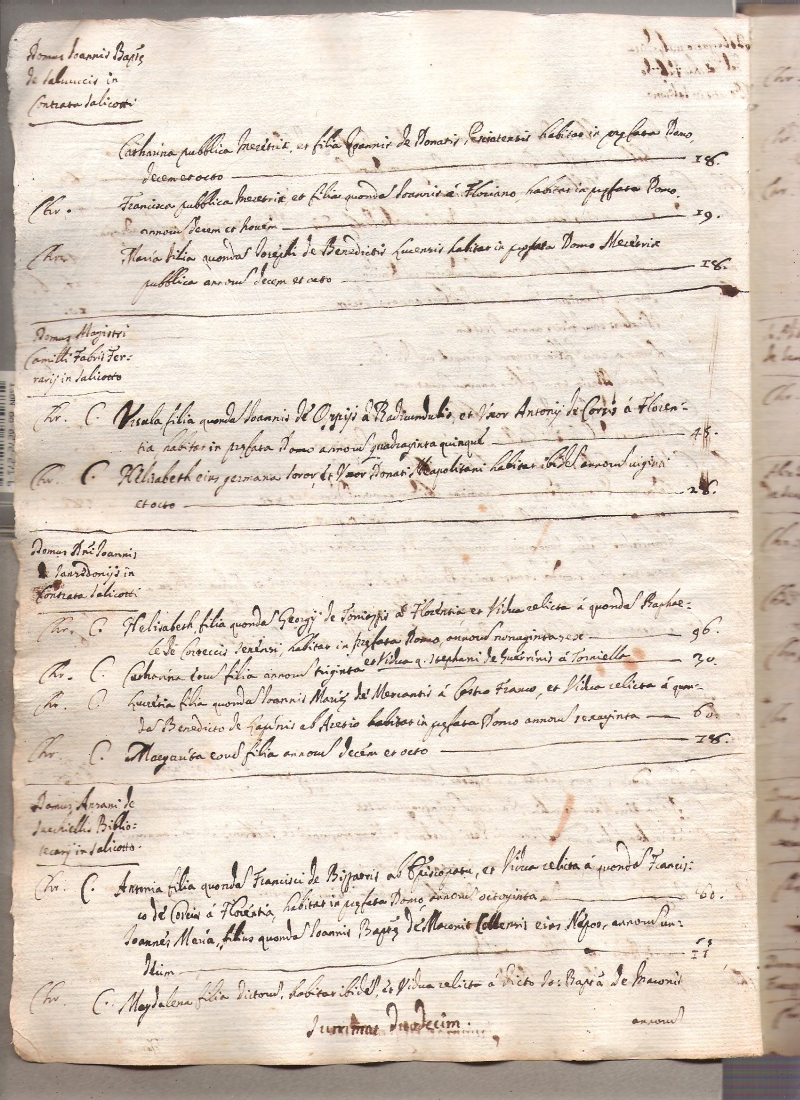 Domus Ioannis Bapt
de Salvuccis in
Contrata Salicotti
Catharina pubblica Meretrix, et filia Ioannis de Donatis, habitat in prefata Domo,
decem et octo 18.
Chr. Francisca pubblica Meretrix et filia quondā Ioannis à Floriano habitat in prefata Domo,
annorū decem et novem 19.
Chr. Maria filia quondā Ioseph de Benedictis Lucensis habitat in prefata Domo Meretrix
pubblica annorū decem et octo 18.
Domus Magistri
Camilli Fabris Fer-
rarij in Salicotto
Chr. C. Ursula filia quondā Ioannis de à Radicundulis, et Uxor Antonij de Corsis à Floren-
tia habitat in prefata Domo annorū quadraginta quinque 45.
Chr. C. Helisabeth eius germana soror, et Uxor Donati Neapolitani habitat ibidē annorū viginti
et octo 28.
Domus Dni Ioannis
Sansedonijs in
Contrata Salicotti
Chr. C. Helisabeth, filia quondā Georgij de à Florētia et Vidua relicta à quondā Raphae-
le de Corteccis Senensi, habitat in prefata Domo, annorū nonaginta sex 96.
Chr. C. Catharina eius filia annorū triginta et Vidua q. Stephani de Guerrinis à Torniella 30.
Chr. C Lucretia filia quondā Ioannis Marię de Mercantis à Castro Franco, et Vidua relicta à quon-
dā Benedicto de ab Acerio habitat in prefata Domo annorū sexaginta 60.
Chr. C. Margarita eius filia annorū decem et octo 18.
Domus Ansani de
Biblio-
tecarij in Salicotto.
Chr. C. Antonia filia quondā Francisci de ab Episcopatu, et Vidua relicta à quondā Francis-
co de Corsis à Florētia, habitat in prefata Domo, annorū octoginta 80.
Ioannes Maria, filius quondā Ioannis Baptę de Maconis Collensis eius Nepos, annorū un-
decim 11
Chr C. Magdalena filia dictorū, habitat ibidē, et Vidua relicta à dicto Io: Bapta de Maconis
annorū
Summat duodecim.